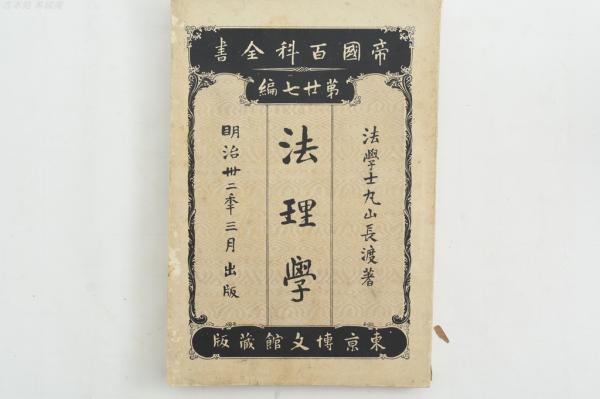 帝國百科全書
第廿七編
法學士丸山長渡著
法理學
明治卅二年三月出版
東京博文館蔵版